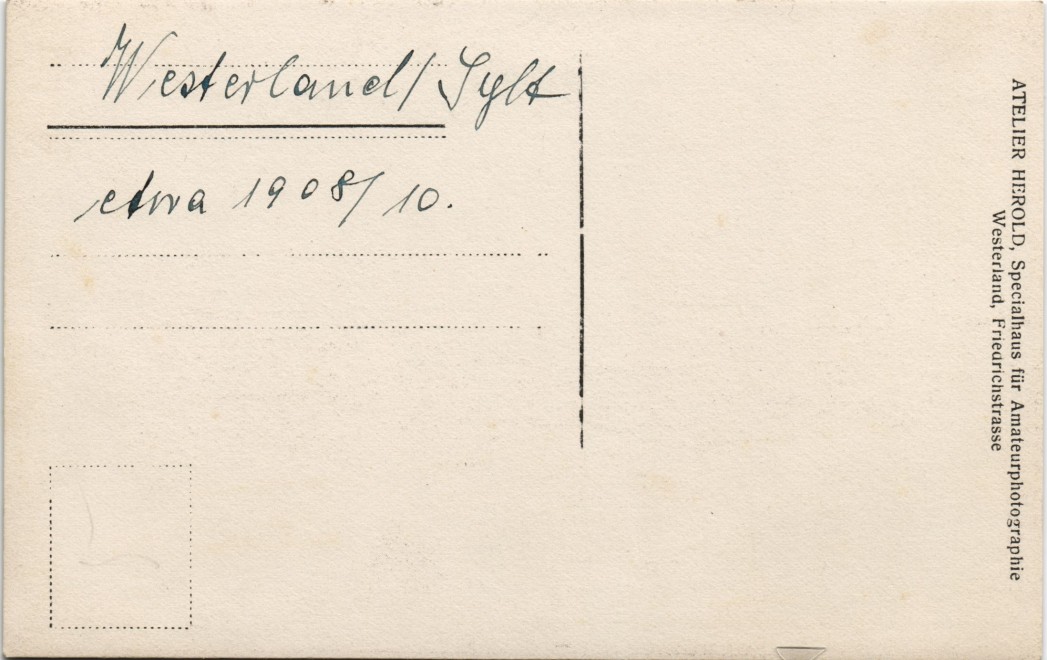 Westerland/Sylt
etwa 1908/10.
ATELIER HEROLD, Specialhaus für Amateurphotographie
Westerland, Friedrichstrasse